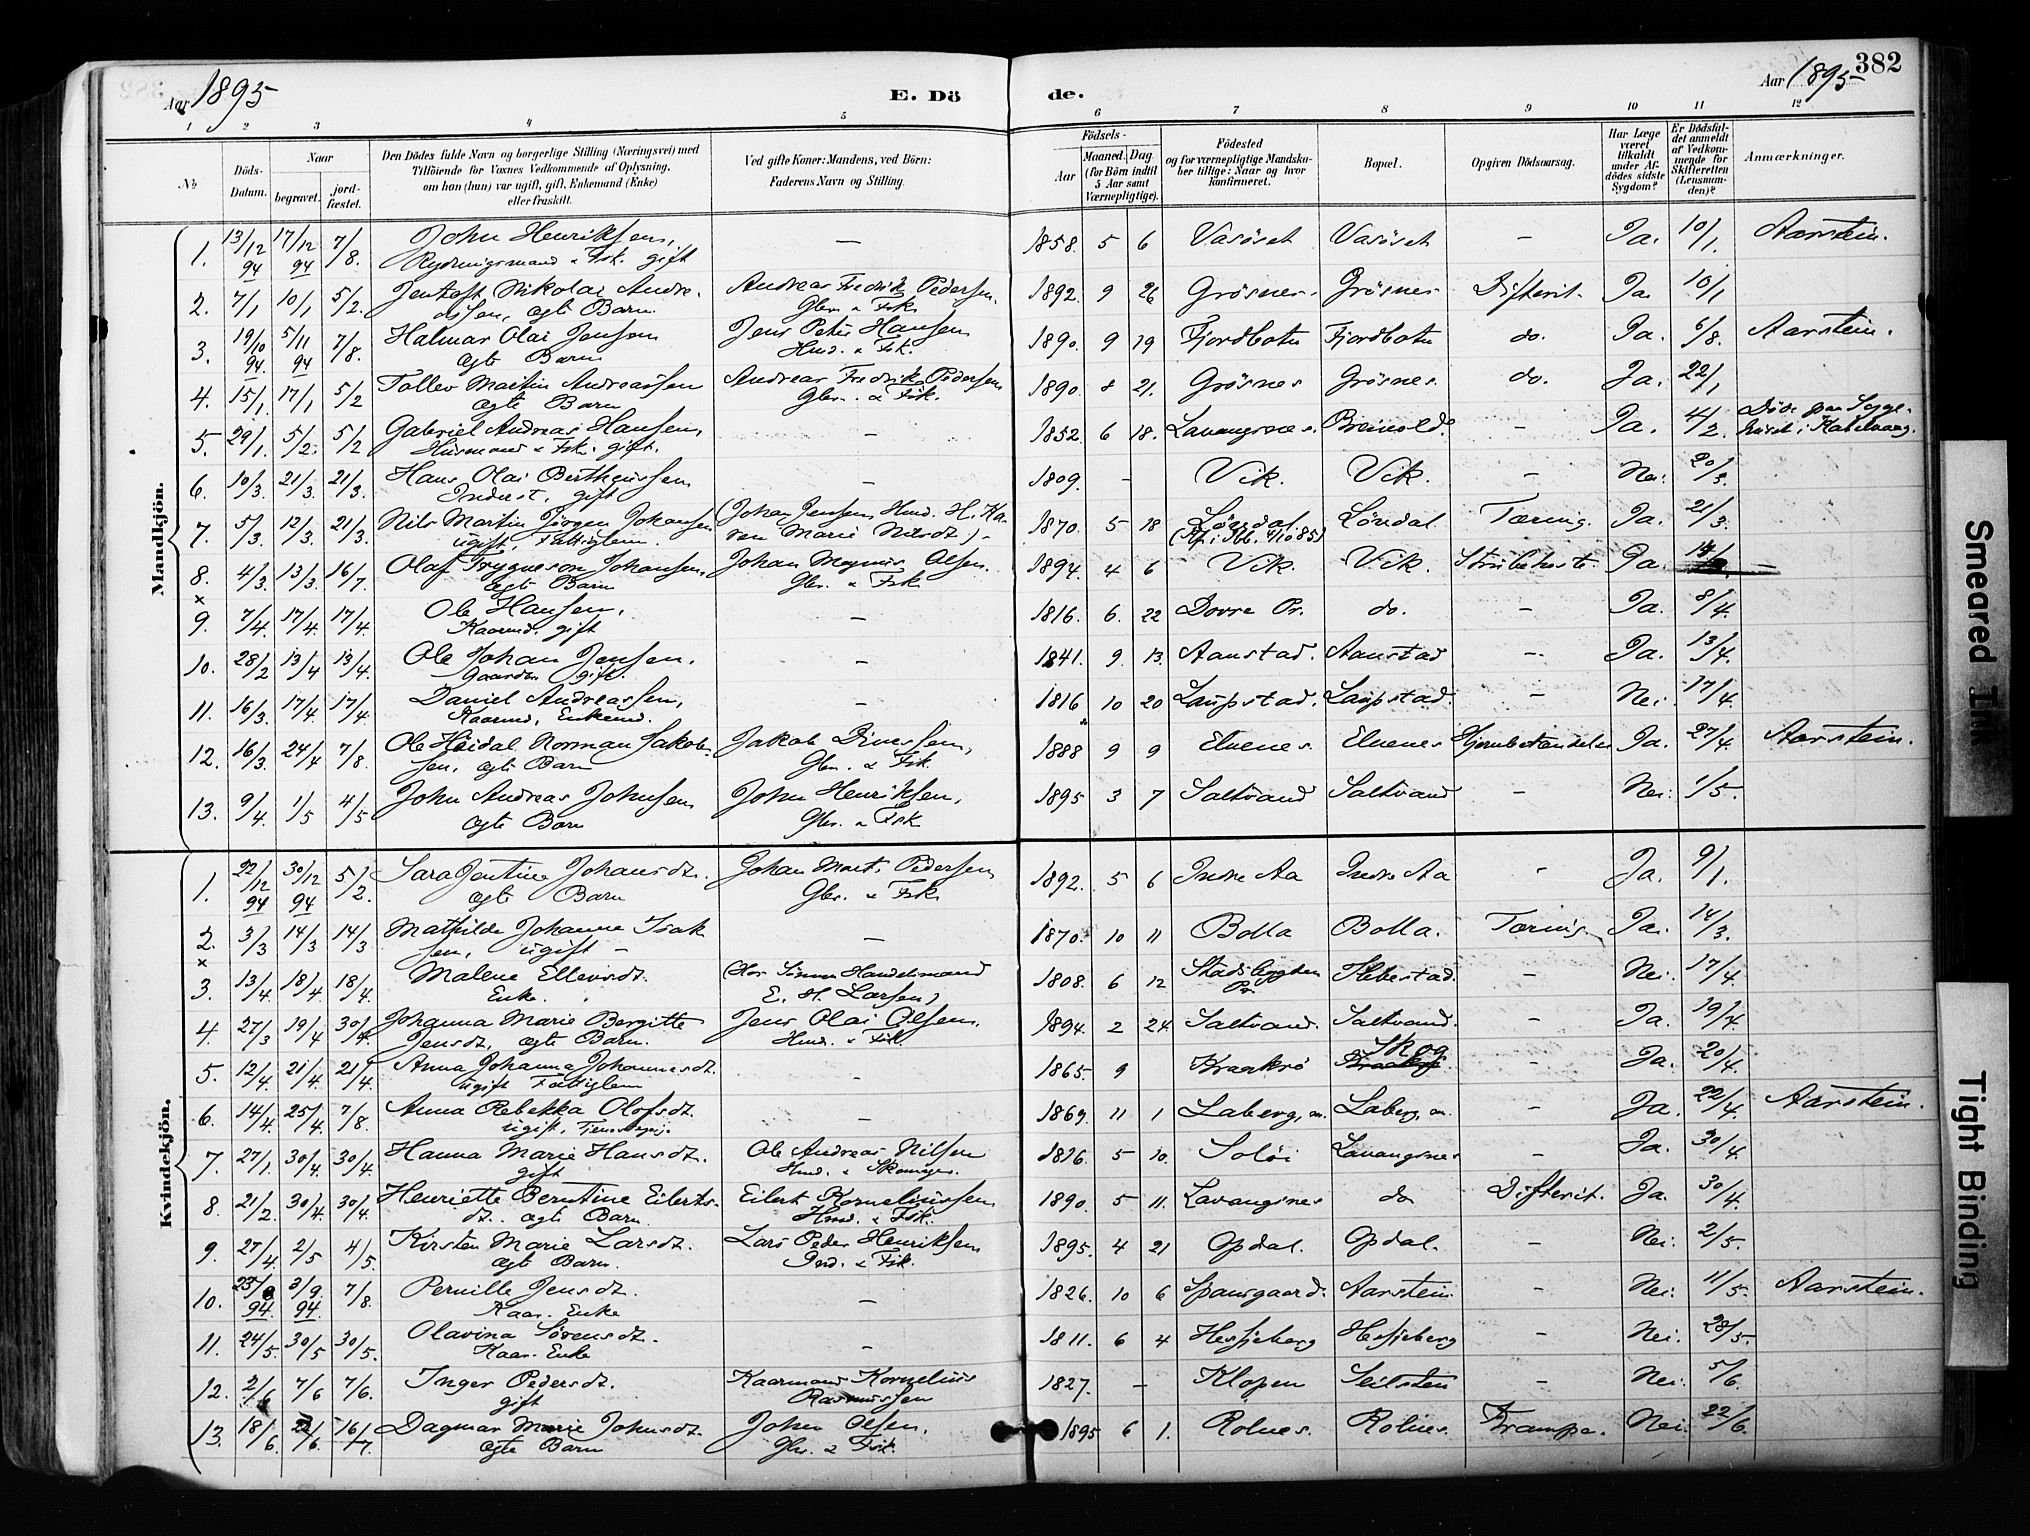 382
Aar 1895
E. Dö
de.
Aar 1895
1 2 3 4 5 6 7 8 9 10 11 12
No
Döds-Datum.
Naar
begravet.
jord-fæstet.
Den Dödes fulde Navn og borgerlige Stilling (Næringsvei) med
Tilföiende for Voxnes Vedkommende af Oplysning,
om han (hun) var ugift, gift, Enkemand (Enke)
eller fraskilt.
Ved gifte Koner: Mandens, ved Börn:
Faderens Navn og Stilling.
Födsels-
Aar
Maaned. Dag
(for Börn indtil
5 Aar samt
Værnepligtige).
Födested
og for værnepligtige Mandska-
ber tillige: Naar og hvor
konfirmeret.
Bopæl.
Opgiven Dödsaarsag.
Har Læge
været
tilkaldt
under Af-
dödes sidste
Sygdom?
Er Dödsfal-
det anmeldt
af Vedkom-
mende for
Skifteretten
(Lensman-
den)?
Anmærkninger.
Mandkjön.
1. 13/12 94 17/12 94 7/8. John Henriksen, — 1858. 5 6 Vasöset Vasöset — Ja. 10/1. Aarstein.
Rydningsmand & Fsk. gift
2. 7/1 10/1 5/2. Jentoft Nikolai Andre- Andreas Fredrik Pedersen, 1892. 9 26 Grösnes Grösnes Difterit. Ja 10/1
assen, ægte Barn Gbr. & Fsk.
3. 19/10 94. 5/11 94 7/8. Halmar Olai Jensen Jens Peter Hansen 1890. 9 19 Fjordbotn Fjordbotn do. Ja. 6/8. Aarstein.
ægte Barn Hmd. & Fsk.
4. 15/1. 17/1 5/2 Tollev Martin Andreassen Andreas Fredrik Pedersen, 1890. 8 21. Grösnes Grösnes. do. Ja. 22/1
ægte Barn Gbr. & Fsk.
5. 29/1. 5/2. 5/2 Gabriel Andreas Hansen, — 1852. 6 18. Lavangsnes. — Ja. 4/2. Döde paa Syge-
Husmand & Fsk. gift. huset i Kabelvaag.
6. 10/3. 21/3. 21/3. Hans Olai Bertheussen — 1809. — Vik. Vik. — Nei. 20/3.
Inderst, gift
7. 5/3. 12/3. 21/3. Nils Martin Jörgen Johansen (Johan Jensen Hmd. H. Ka- 1870. 5 18 Löndal. Löndal Tæring. Ja. 21/3.
ugift, Fattiglem. ren Marie Nilsdt.)
8. 4/3 13/3. 16/7 Olaf Trygveson Johansen Johan Magnus Olsen. 1894. 4 6 Vik. Vik. Strubehoste. Ja. —
ægte Barn Gbr. & Fsk
x
9. 7/4. 17/4. 17/4 Ole Hansen, — 1816. 6. 22 Dovre Pr. do. — Ja. 8/4.
Kaarmd. gift
10. 28/2 13/4 13/4. Ole Johan Jensen. — 1841. 9. 13. Aanstad. Aanstad — Ja. 13/4.
Gaardbr. gift.
11. 16/3. 17/4 17/4. Daniel Andreassen, — 1816 10 20 Laupstad. Laupstad. — Nei. 17/4.
Kaarmd, Enkemd.
12. 16/3. 24/4 7/8. Ole Heidal Norman Jakob- Jakob Dinessen, 1888 9 9 Elvenes. Elvenes Hjernebetændelse Ja. 27/4 Aarstein.
sen, ægte Barn Gbr. & Fsk.
13. 9/4. 1/5 4/5 John Andreas Johnsen John Henriksen, 1895 3 7 Saltvand Saltvand — Nei. 1/5.
ægte Barn Gbr. & Fsk
Kvindekjön.
1. 22/12 94 30/12 94 5/2. Sara Jentine Johansdt. Johan Mart. Pedersen 1892. 5 6 Indre Aa Indre Aa - Ja. 9/1.
ægte Barn Gbr. & Fsk
2. 3/3 14/3 14/3 Mathilde Johanne Isak — 1870. 10 11 Bolla Bolla. Tæring. Ja. 14/3.
sen, ugift —
x
3. 13/4 18/4 18/4. Malene Ellevsdt. (Hos Sönnen Handelsmand 1808. 6 12 Stadsbygden Ibbestad. — Nei. 17/4.
Enke. E. H. Larsen) Pr.
4. 27/3 19/4 30/4. Johanna Marie Bergitte Jens Olai Olsen. 1894. 2 24. Saltvand. Saltvand. - Ja. 19/4
Jensdt, ægte Barn. Hmd. & Fsk.
5. 12/4. 21/4. 21/4 Anna Johanna Johannesdt. - 1865. 9 Kraakrö Skog - Ja. 20/4.
ugift Fattiglem
6. 14/4. 25/4. 7/8. Anna Rebekka Olofsdt. — 1869. 11 1 Laberg, Laberg, - Ja. 22/4. Aarstein.
ugift,
7. 27/1. 30/4. 30/4. Hanna Marie Hansdt. Ole Andreas Nilsen 1826. 5 10. Solöi Lavangsnes - Ja. 30/4.
gift Hmd. & Skomager.
8. 21/2. 30/4. 30/4. Henriette Berntine Eilerts- Eilert Korneliussen 1890. 5 11. Lavangsnes do Difterit. Ja. 30/4.
dt. ægte Barn Hmd. & Fsk.
9. 27/4. 2/5 4/5. Kirsten Marie Larsdt. Lars Peder Henriksen 1895. 4 21 Opdal. Opdal. - Nei. 2/5.
ægte Barn. Ind. & Fsk.
10. 94. 3/9. 94. 7/8. Pernille Jensdt. — 1826. 10 6 Spansgaard. Aarstein - Nei. 11/5. Aarstein.
Kaar. Enke
11. 24/5. 30/5 30/5. Olavina Sörensdt. — 1811. 6 4 Hessjeberg Hessjeberg — Nei. 28/5.
Kaar. Enke
12. 2/6 7/6 7/6. Inger Pedersdt. Kaarmand Kornelius 1827. — Klopen Seilsten — Nei. 5/6.
gift Rasmussen
13. 18/6. 16/7. Dagmar Marie Johnsdt. John Olsen. 1895 6 1. Rolnes. Rolnes. Krampe. Nei. 22/6.
ægte Barn Gbr. & Fsk.
Smeared Ink
Tight Binding